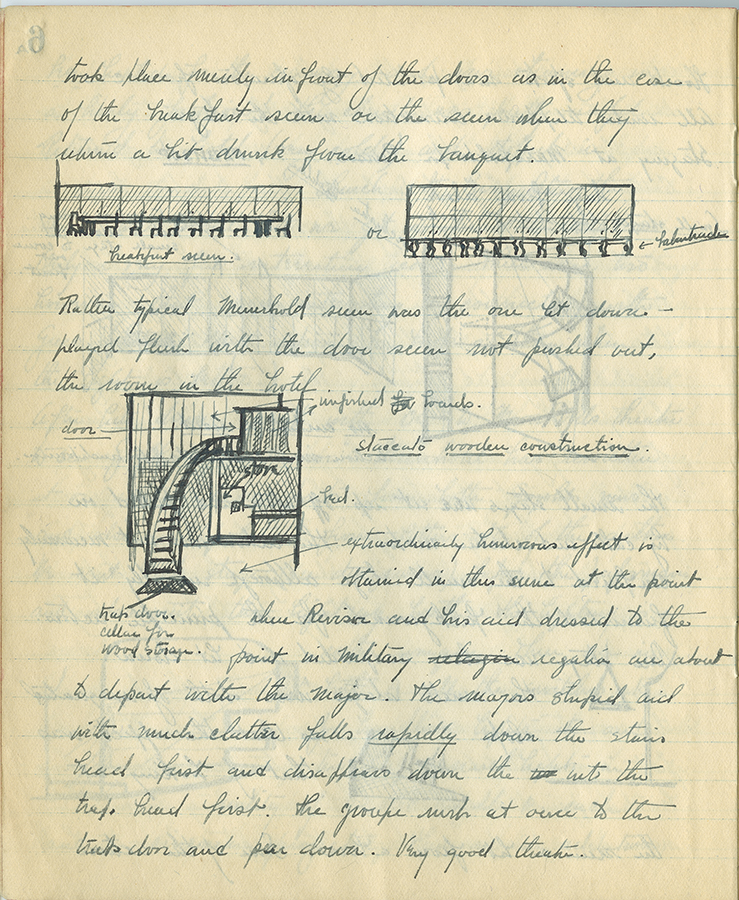 took place merely in front of the doors as in the case
of the breakfast seen or the seen when they
return a bit drunk from the banquet.
breakfast seen.
or
← balustrade
Rather typical Meierhold seen was the one let down –
played flush with the door seen not pushed out,
the room in the hotel
door
unfinished boards.
staccato wooden construction.
stove
bed.
extraordinarily humorous effect is
obtained in this scene at the point
trap door.
cellar for
wood storage.
when Revisor and his aid dressed to the
point in military regalia are about
to depart with the major. The majors stupid aid
with much clatter falls rapidly down the stairs
head first and disappears down the into the
trap head first. The groupe rush at once to the
trap door and peer down. Very good theatre.
6